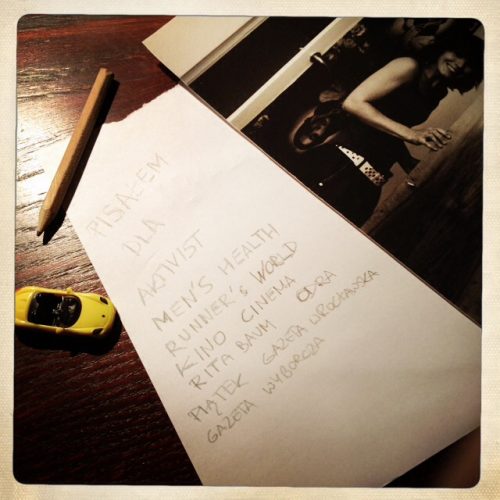 PISAŁEM
DLA
AKTIVIST
MEN'S HEALTH
RUNNER'S WORLD
KINO CINEMA
RITA BAUM ODRA
PIĄTEK GAZETA WROCŁAWSKA
GAZETA WYBORCZA